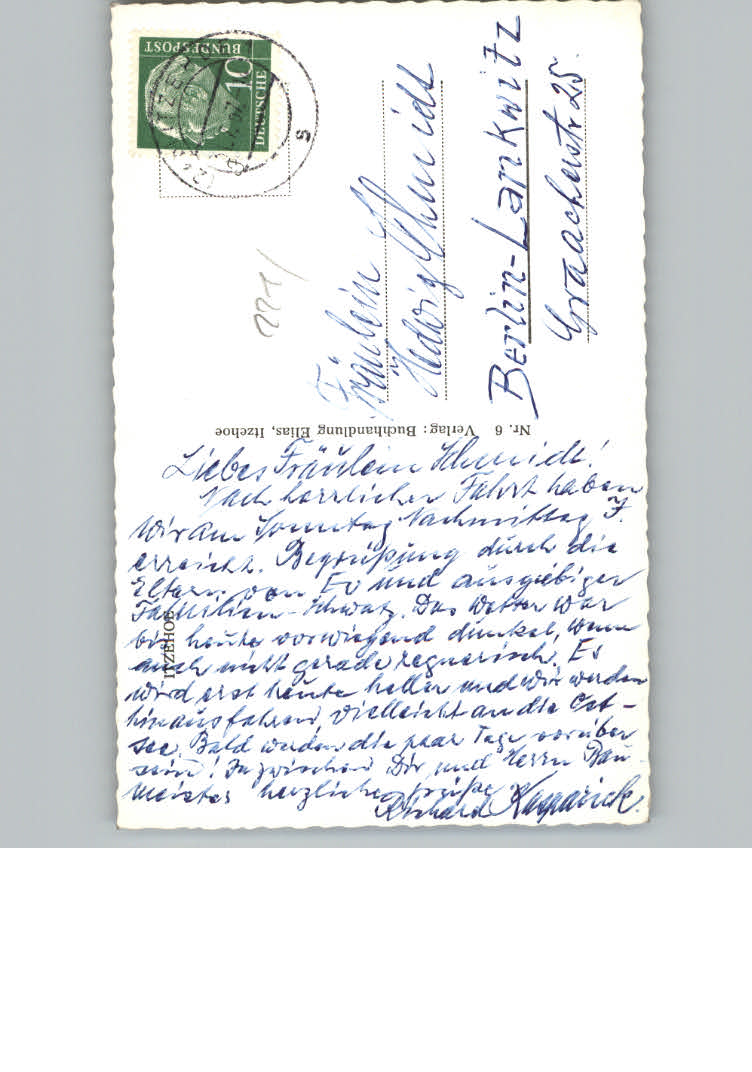 DEUTSCHE
BUNDESPOST
10
221/
Fräulein
Hedwig Schmidt
Berlin-Lankwitz
Graacherstr. 25.
Nr. 6 Verlag: Buchhandlung Elias, Itzehoe
ITZEHOE
Liebes Fräulein Schmidt!
Nach herrlicher Fahrt haben
wir am Sonntag Nachmittag J.
erreicht. Begrüßung durch die
Eltern von Ev und ausgiebiger
Familien-Schwatz. Das Wetter war
bis heute vorwiegend dunkel, wenn
auch nicht gerade regnerisch. Es
wird erst heute heller und wir werden
hinausfahren, vielleicht an die Ost-
see. Bald werden die paar Tage vorüber
sein! Inzwischen Dir und Herrn Bau-
meister herzliche Grüße
Richard